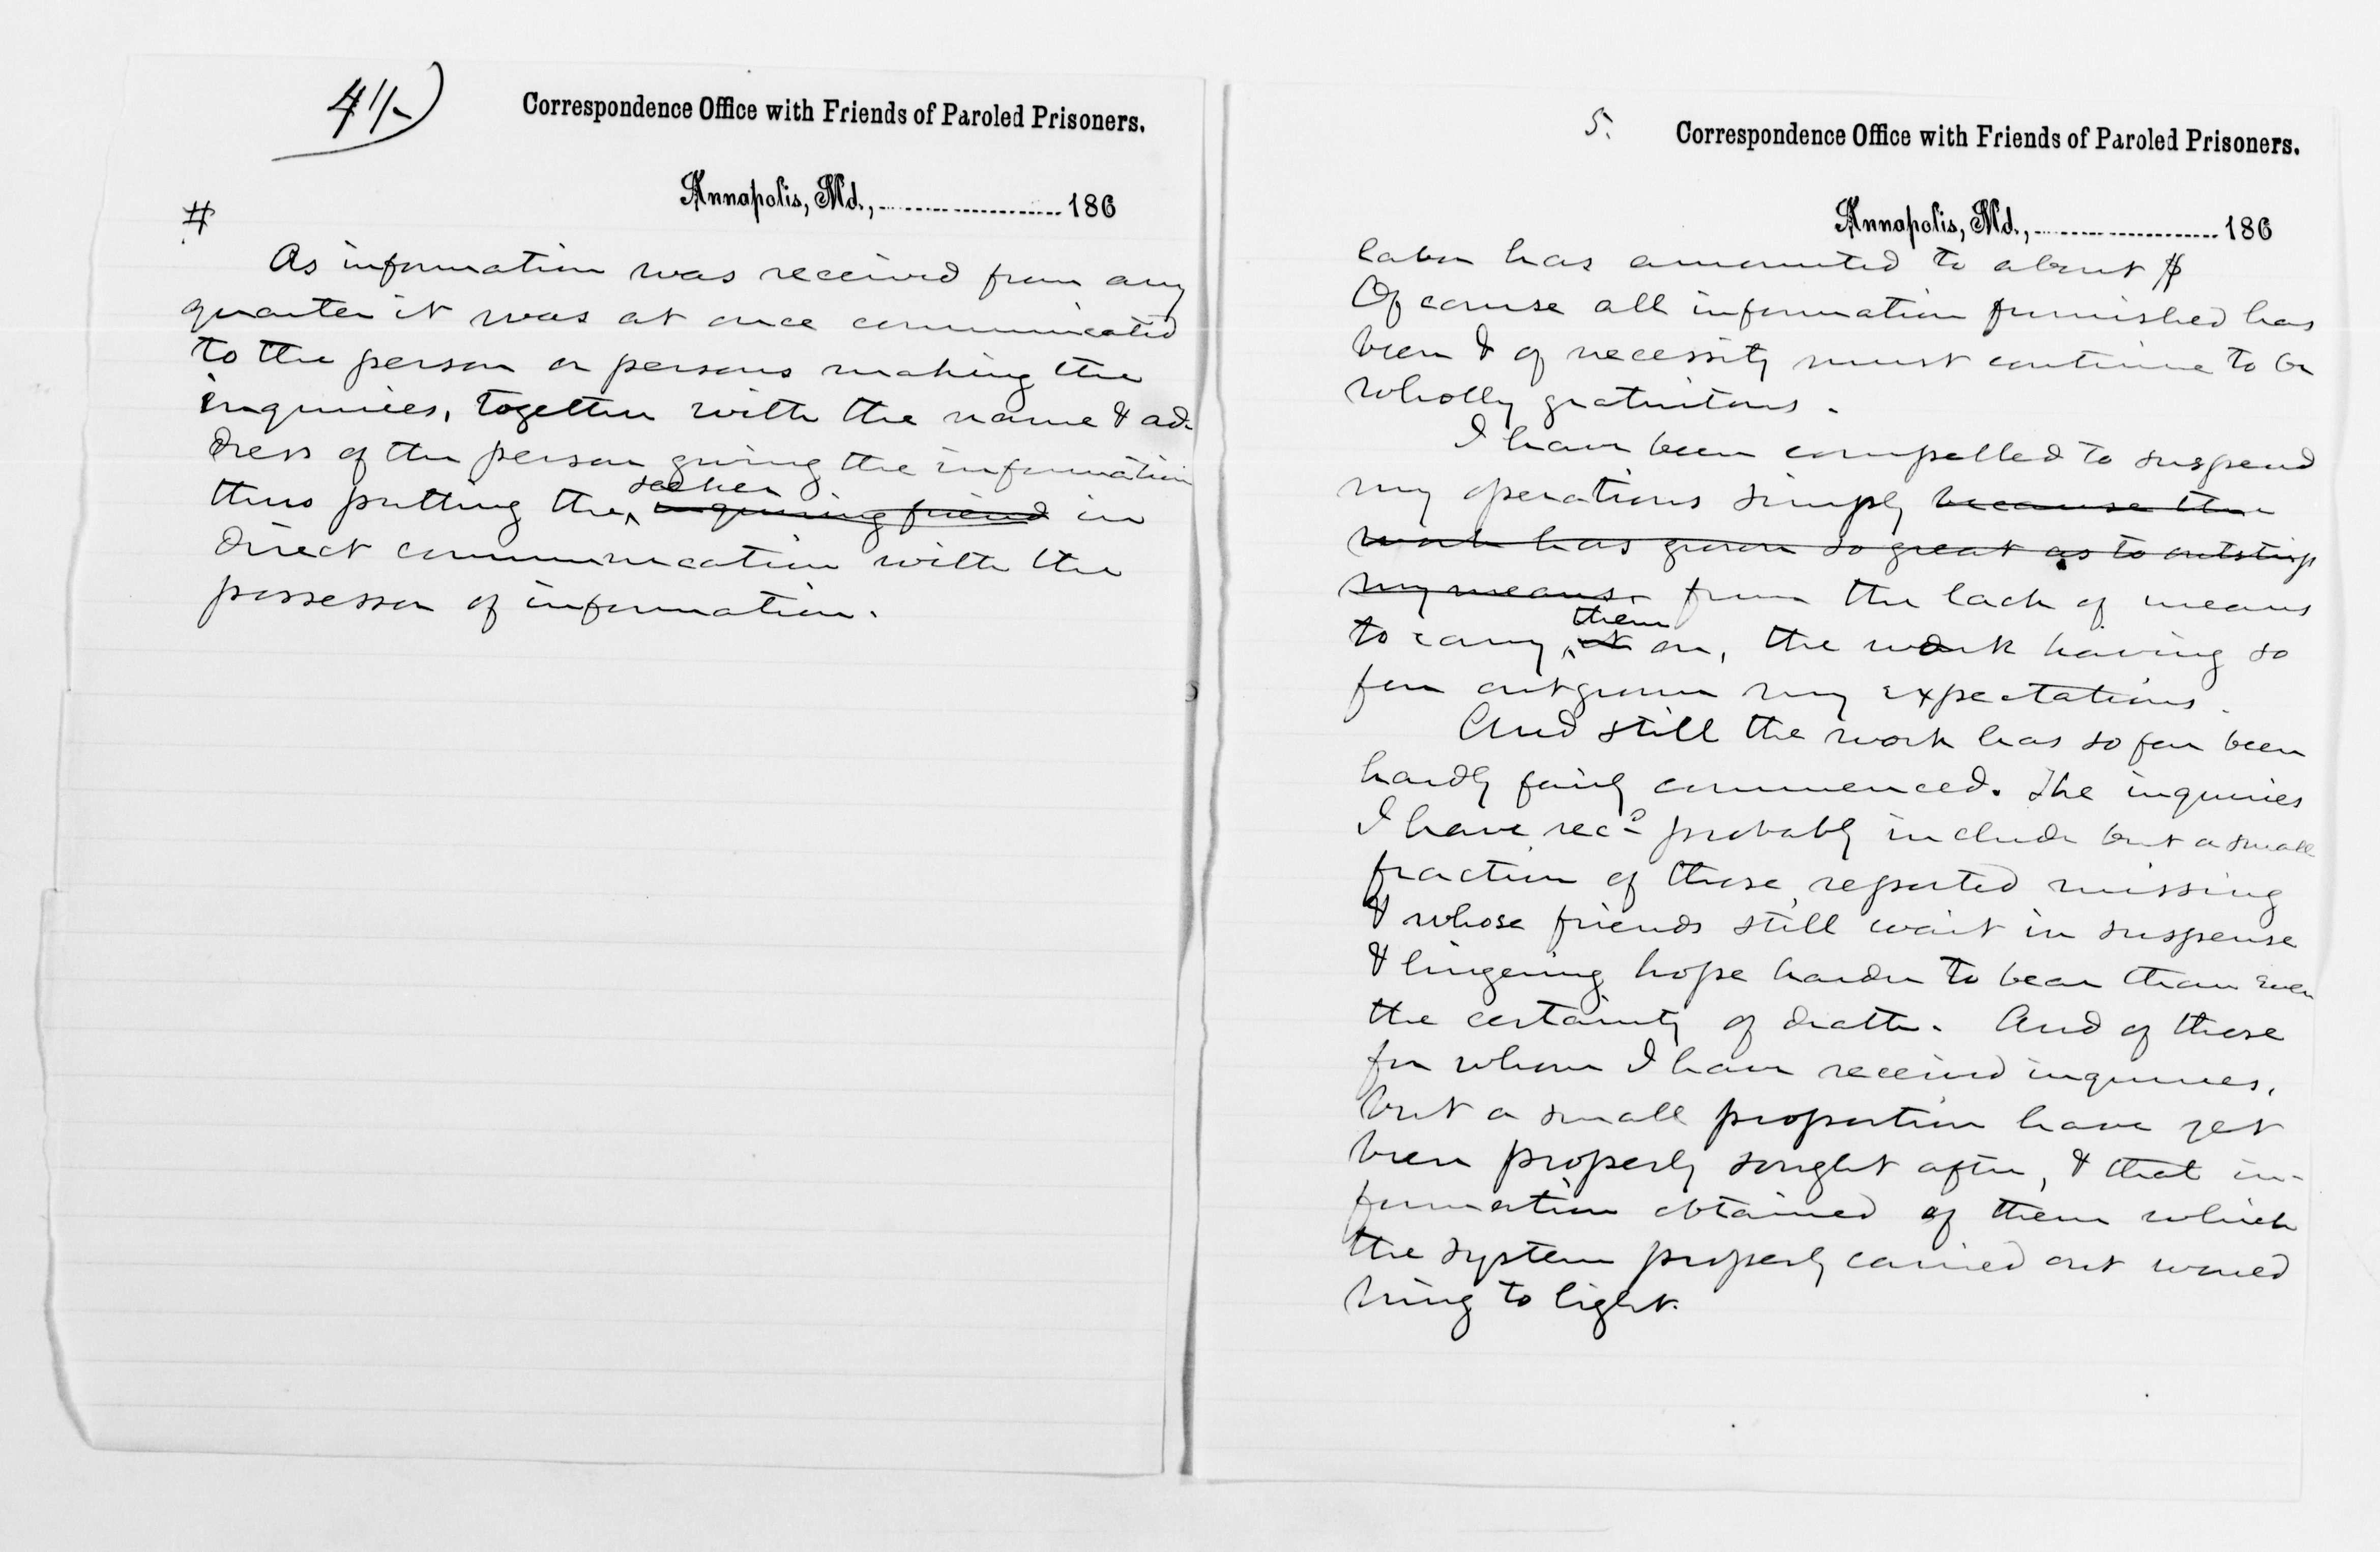 4 1/2
Correspondence Office with Friends of Paroled Prisoners.
Annapolis, Md., 186
#
As information was received from any
quarter it was at once communicated
to the person or persons making the
inquiries, together with the name & ad-
dress of the person giving the information
thus putting the seeker inquiring friend in
direct communication with the
possessor of information.
5.
Correspondence Office with Friends of Paroled Prisoners.
Annapolis, Md., 186
labor has amounted to about $
Of course all information furnished has
been & of necessity must continue to be
wholly gratuitous.
I have been compelled to suspend
my operations simply because the
work has grown so great as to outstrip
my means. from the lack of means
to carry them it on, the work having so
far outgrown my expectations.
And still the work has so far been
hardly fairly commenced. The inquiries
I have recd probably include but a small
fraction of those reported missing
& whose friends still wait in suspense
& lingering hope harder to bear than even
the certainty of death. And of those
for whom I have received inquiries,
but a small proportion have yet
been properly sought after, & that in-
formation obtained of them which
the system properly carried out would
bring to light.